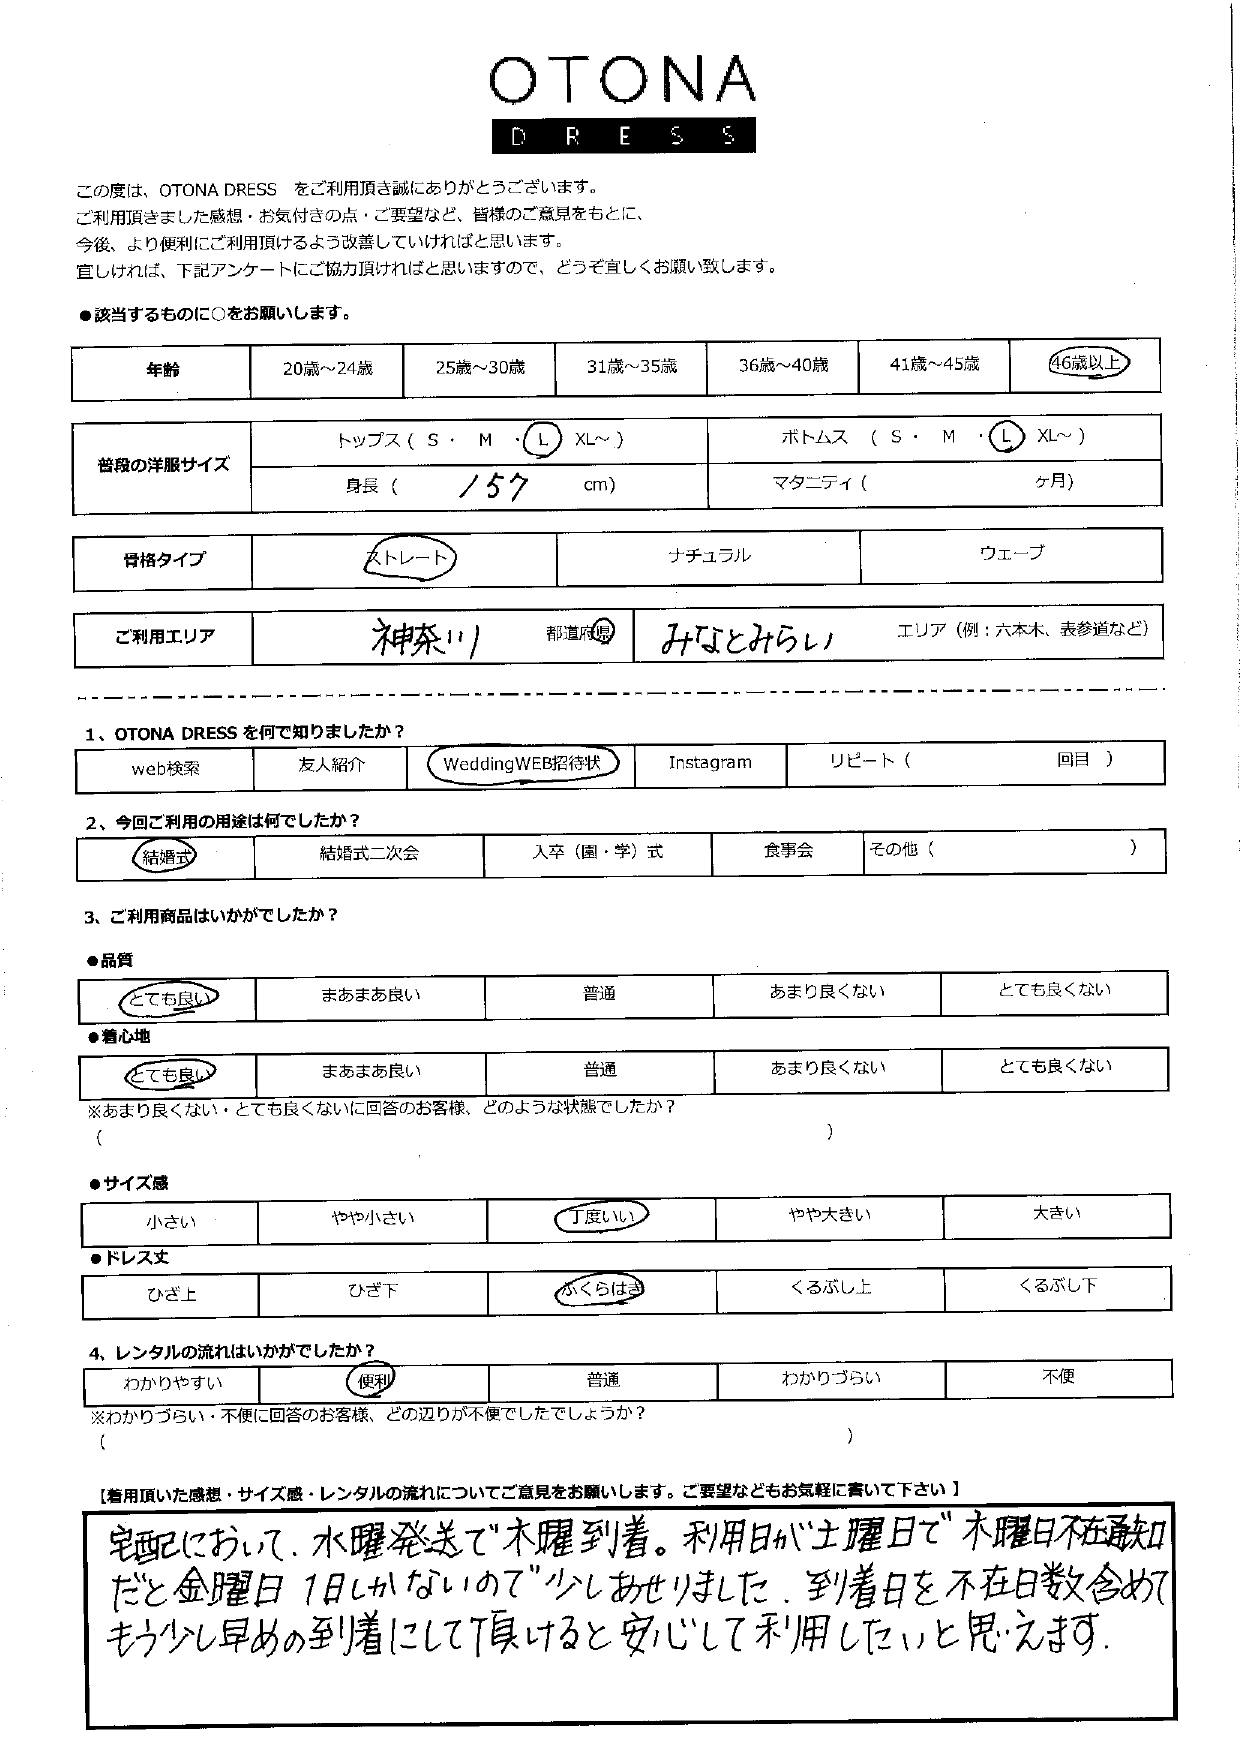 OTONA
DRESS
この度は、OTONA DRESS　をご利用頂き誠にありがとうございます。
ご利用頂きました感想・お気付きの点・ご要望など、皆様のご意見をもとに、
今後、より便利にご利用頂けるよう改善していければと思います。
宜しければ、下記アンケートにご協力頂ければと思いますので、どうぞ宜しくお願い致します。
●該当するものに○をお願いします。
年齢 20歳～24歳 25歳～30歳 31歳～35歳 36歳～40歳 41歳～45歳 46歳以上
普段の洋服サイズ トップス ( S ・ M ・ L XL～ ) ボトムス ( S ・ M ・ L XL～ )
身長 ( 157 cm) マタニティ ( ヶ月)
骨格タイプ ストレート ナチュラル ウェーブ
ご利用エリア 神奈川 都道府県 みなとみらい エリア（例：六本木、表参道など）
1、OTONA DRESS を何で知りましたか？
web検索 友人紹介 WeddingWEB招待状 Instagram リピート ( 回目 )
2、今回ご利用の用途は何でしたか？
結婚式 結婚式二次会 入卒（園・学）式 食事会 その他 ( )
3、ご利用商品はいかがでしたか？
●品質
とても良い まあまあ良い 普通 あまり良くない とても良くない
●着心地
とても良い まあまあ良い 普通 あまり良くない とても良くない
※あまり良くない・とても良くないに回答のお客様、どのような状態でしたか？
( )
●サイズ感
小さい やや小さい 丁度いい やや大きい 大きい
●ドレス丈
ひざ上 ひざ下 ふくらはぎ くるぶし上 くるぶし下
4、レンタルの流れはいかがでしたか？
わかりやすい 便利 普通 わかりづらい 不便
※わかりづらい・不便に回答のお客様、どの辺りが不便でしたでしょうか？
( )
【着用頂いた感想・サイズ感・レンタルの流れについてご意見をお願いします。ご要望などもお気軽に書いて下さい 】
宅配において、水曜発送で木曜到着。利用日が土曜日で木曜日不在通知
だと金曜日1日しかないので少しあせりました。到着日を不在日数含めて
もう少し早めの到着にして頂けると安心して利用したいと思えます.